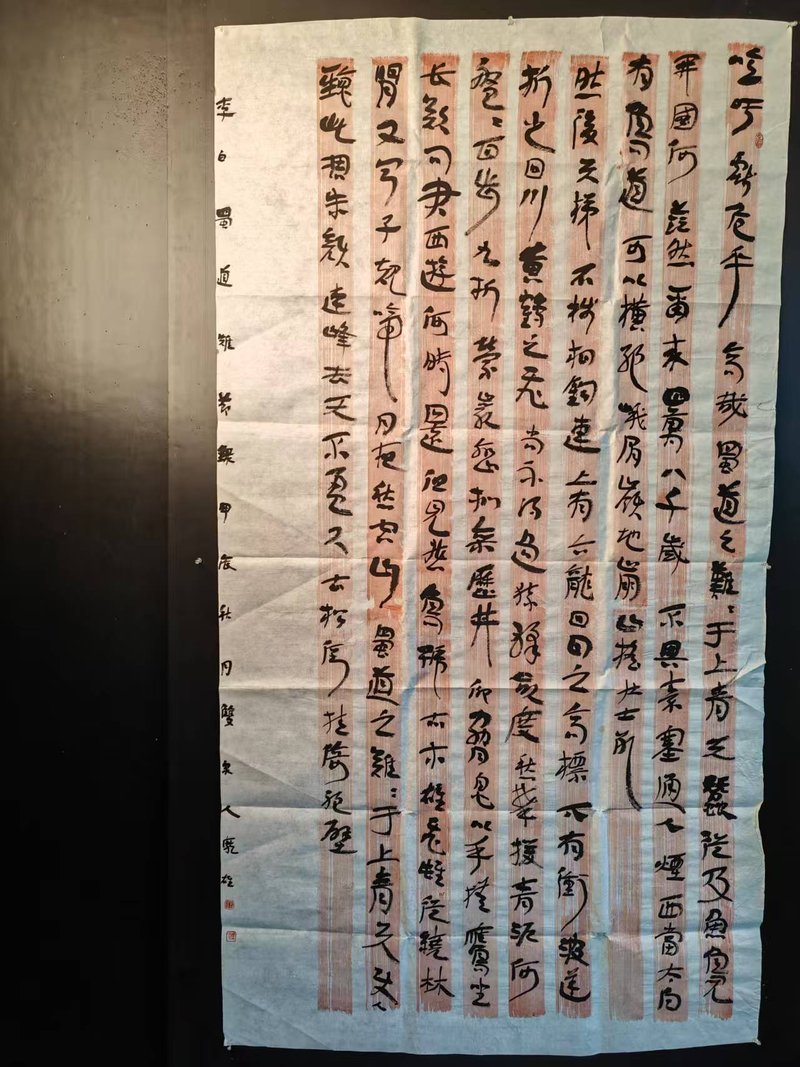 噫吁戲危乎高哉蜀道之難〻于上青天蠶叢及魚鳧
開國何茫然爾來四萬八千歲不與秦塞通人煙西當太白
有鳥道可以橫絕峨眉巔地崩山摧壯士死
然後天梯石棧相鉤連上有六龍回日之高標下有衝波逆
折之回川黃鶴之飛尚不得過猿猱欲度愁攀援青泥何
盤〻百步九折縈巖巒捫參歷井仰脅息以手撫膺坐
長歎問君西遊何時還但見悲鳥號古木雄飛雌從繞林
間又聞子規啼月夜愁空山蜀道之難〻于上青天使人
聽此凋朱顏連峰去天不盈尺古松倒挂倚絕壁
李白蜀道難節錄甲辰秋月雙泉人